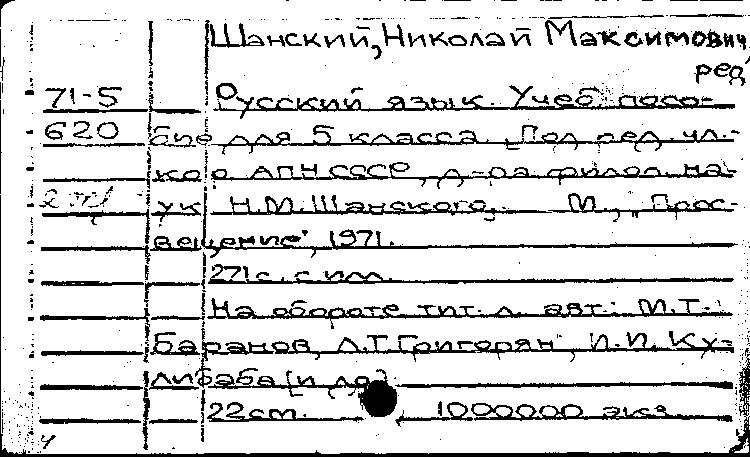 Шанский, Николай Максимович
ред.
71-5 Русский язык. Учеб. посо-
620 бие для 5 класса. Под ред. чл.-
кор АПН СССР, д-ра филол. на-
2 ук Н.М. Шанского. М., "Прос-
вещение", 1971.
271 с. с илл.
На обороте тит. л. авт.: М.Т.
Баранов, Л.Т. Григорян, И.И. Ку-
либаба [и др.]
22 см. 1000000 экз.